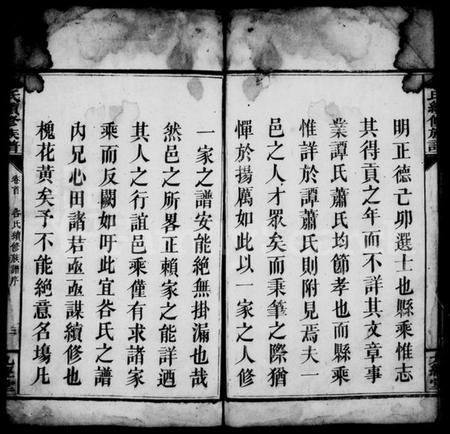 明正德己卯選士也縣乘惟志
其得貢之年而不詳其文章事
業譚氏蕭氏均節孝也而縣乘
惟詳於譚蕭氏則附見焉夫一
邑之人才眾矣而秉筆之際猶
憚於揚厲如此以一家之人修
一家之譜安能絕無掛漏也哉
然邑之所畧正賴家之能詳迺
其人之行誼邑乘僅有求諸家
乘而反闕如吁此宜昝氏之譜
内兄心田諸君亟亟謀續修也
槐花黃矣予不能絕意名場凡
氏續修族譜
卷首
昝氏續修族譜序